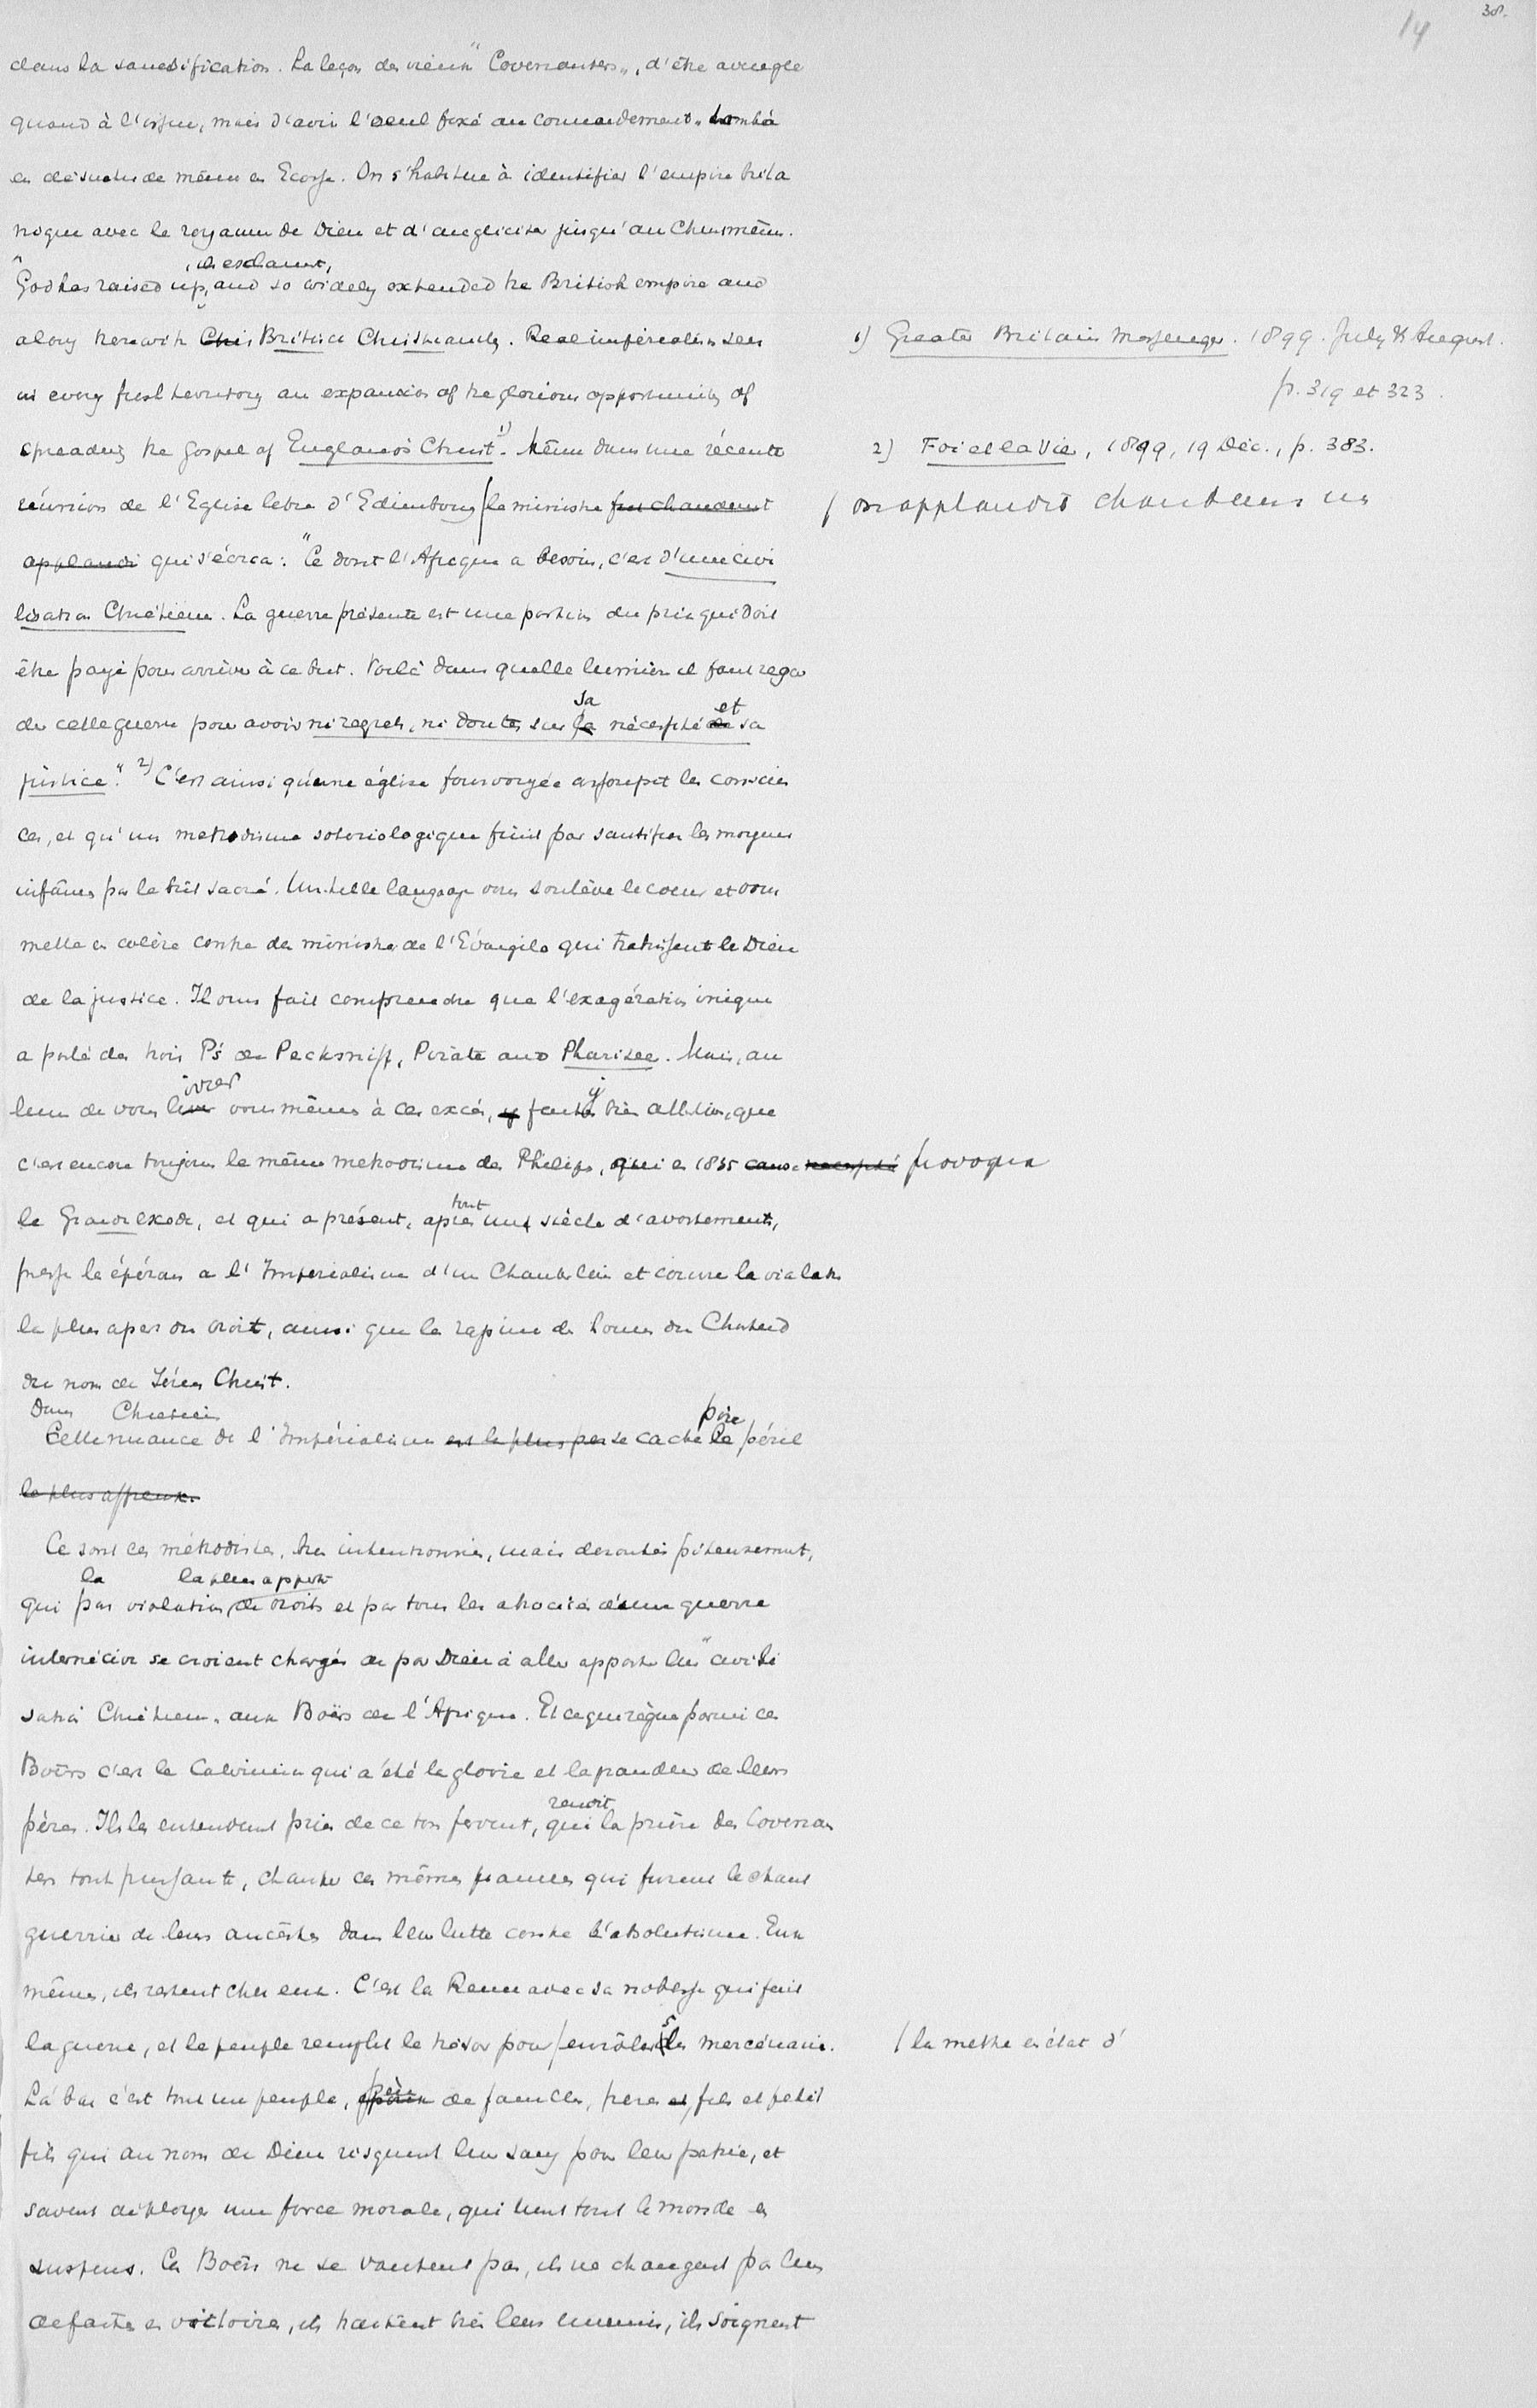 38.
14
dans la sanctification. La leçon des vieux "Covenanters", d'être aveugle
quand à l'issue, mais d'avoir l'oeuil fixé au commandement, tomba
en désuetude même en Ecosse. On s'habitue à identifier l'empire brita
nique avec le royaume de Dieu et d'angliciser jusqu'au Christ même.
, ils exclament,
"God has raised up, and so widely extended the British empire and
along therewith British Christianity. Real imperialism sees
in every fresh territory an expansion of the glorious opportunity of
spreading the Gospel of England's Christ. 1) Même dans une récente
réunion de l'Eglise libre d'Edimbourg / le ministre fut chaudement
applaudi qui s'écria: "Ce dont l'Afrique a besoin, c'est d'une civi
lisation Chrétienne. La guerre présente est une portion du prix qui doit
être payé pour arriver à ce but. Voilà dans quelle lumière il faut regar
sa et
der cette guerre pour avoir ni regrets, ni doutes sur la nécessité de sa
justice." 2) C'est ainsi qu'une église fourvoyée assoupit les conscien
ces, et qu'un methodisme soteriologique finit par sanctifier les moyens
infâmes par le but sacré. Un telle langage vous soulève le coeur et vous
mette en colère contre des ministres de l'Évangile qui trahissent le Dieu
de la justice. Il vous fait comprendre que l'exagération inique
a parlé des trois P's de Pecksniff, Pirate and Pharisee. Mais, au
ivrer y
lieu de vous livrer vous mêmes à ces excès, y faites bien attention, que
c'est encore toujours le même methodisme des Philips, qui en 1835 cause necessité provoqua
tout
le Grand exode, et qui a présent, après un siècle d'avortements,
presse le éperon a l'Imperialisme d'un Chamberlain et couvre la violation
la plus apert du droit, aussi que la rapine de houes du Chartered
du nom de Jésus Christ.
Dans Chretien
Cette nuance de l'Impérialisme est le plus per se cache le
pire
péril
le plus affreux.
Ce sont ces méthodistes, bien intentionnés, mais deroutés piteusement,
la la plus appert
qui par violation de droits et par tous les atrocités d'une guerre
internécive se croient chargés de par Dieu à aller apporter leur "civili
sation Chrétienne" aux Boërs de l'Afrique. Et ce qui règne parmi ces
Boërs c'est le Calvinisme qui a été la gloire et la grandeur de leurs
renoit
pères. Ils les entendent prier de ce ton fervent, qui la prière des Covenan
ters tout puissante, chanter ces mêmes psaumes qui furent le chant
guerrier de leurs ancêtres dans leur lutte contre l'absolutisme. Eux
mêmes, ils restent chez eux. C'est la Reine avec sa noblesse qui fait
la guerre, et le peuple remplit le trésor pour / enrôler les mercénaires.
Là bas c'est tout un peuple, de familles, peres et, fils et petit
fils qui au nom de Dieu risquent leur sang pour leur patrie, et
savent déployer une force morale, qui tient tout le monde en
suspens. Ces Boërs ne se vantent pas, ils ne changent pas leurs
defaites en victoires, ils traitent bien leurs ennemis, ils soignent
1) Greater Britain Messenger. 1899. July & August.
p. 319 et 323.
2) Foi et la Vie, 1899, 19 Déc., p. 383.
/ on applaudit chaudement un
/ la mettre en état d'